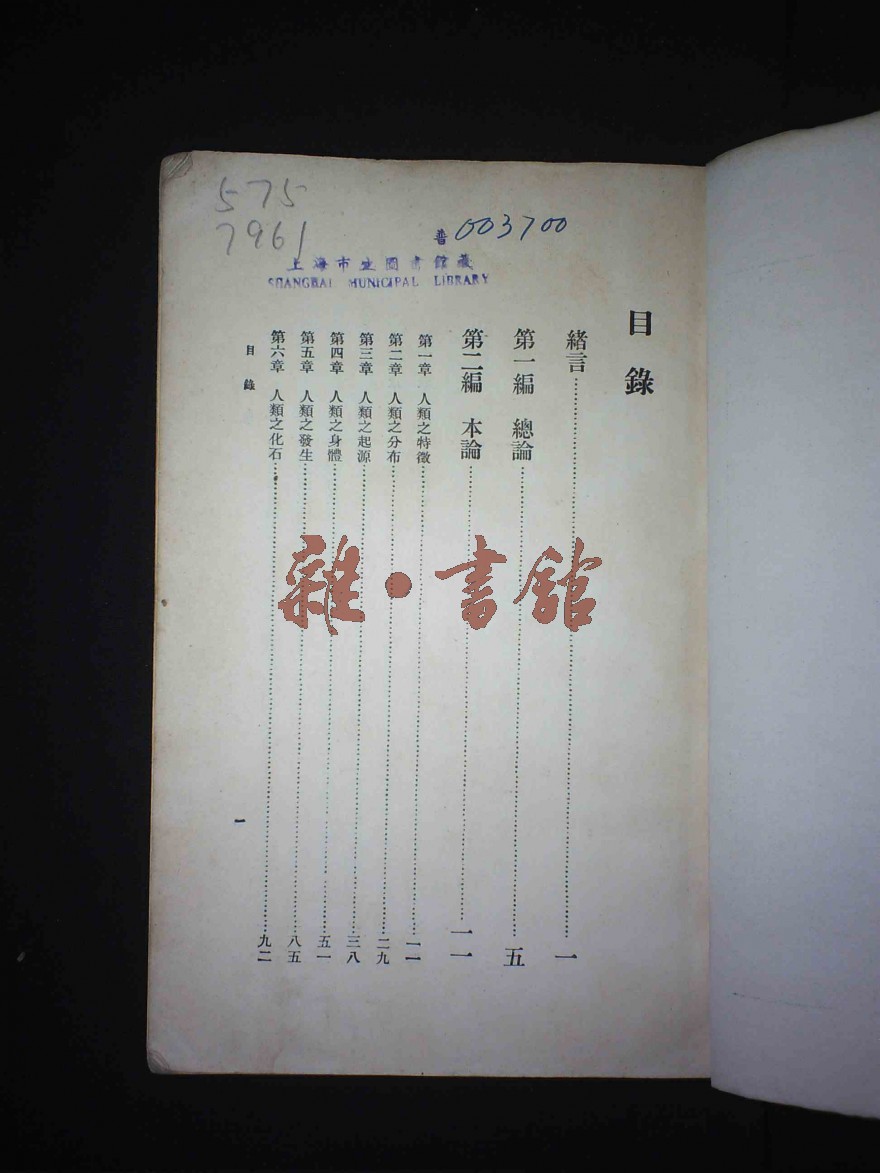 575
7961
普 003700
上海市立圖書館藏
SHANGHAI MUNICIPAL LIBRARY
目錄
緒言……一
第一編 總論……五
第二編 本論……一一
第一章 人類之特徵……一一
第二章 人類之分布……二九
第三章 人類之起源……三八
第四章 人類之身體……五一
第五章 人類之發生……八五
第六章 人類之化石……九二
目錄
一
雜·書館